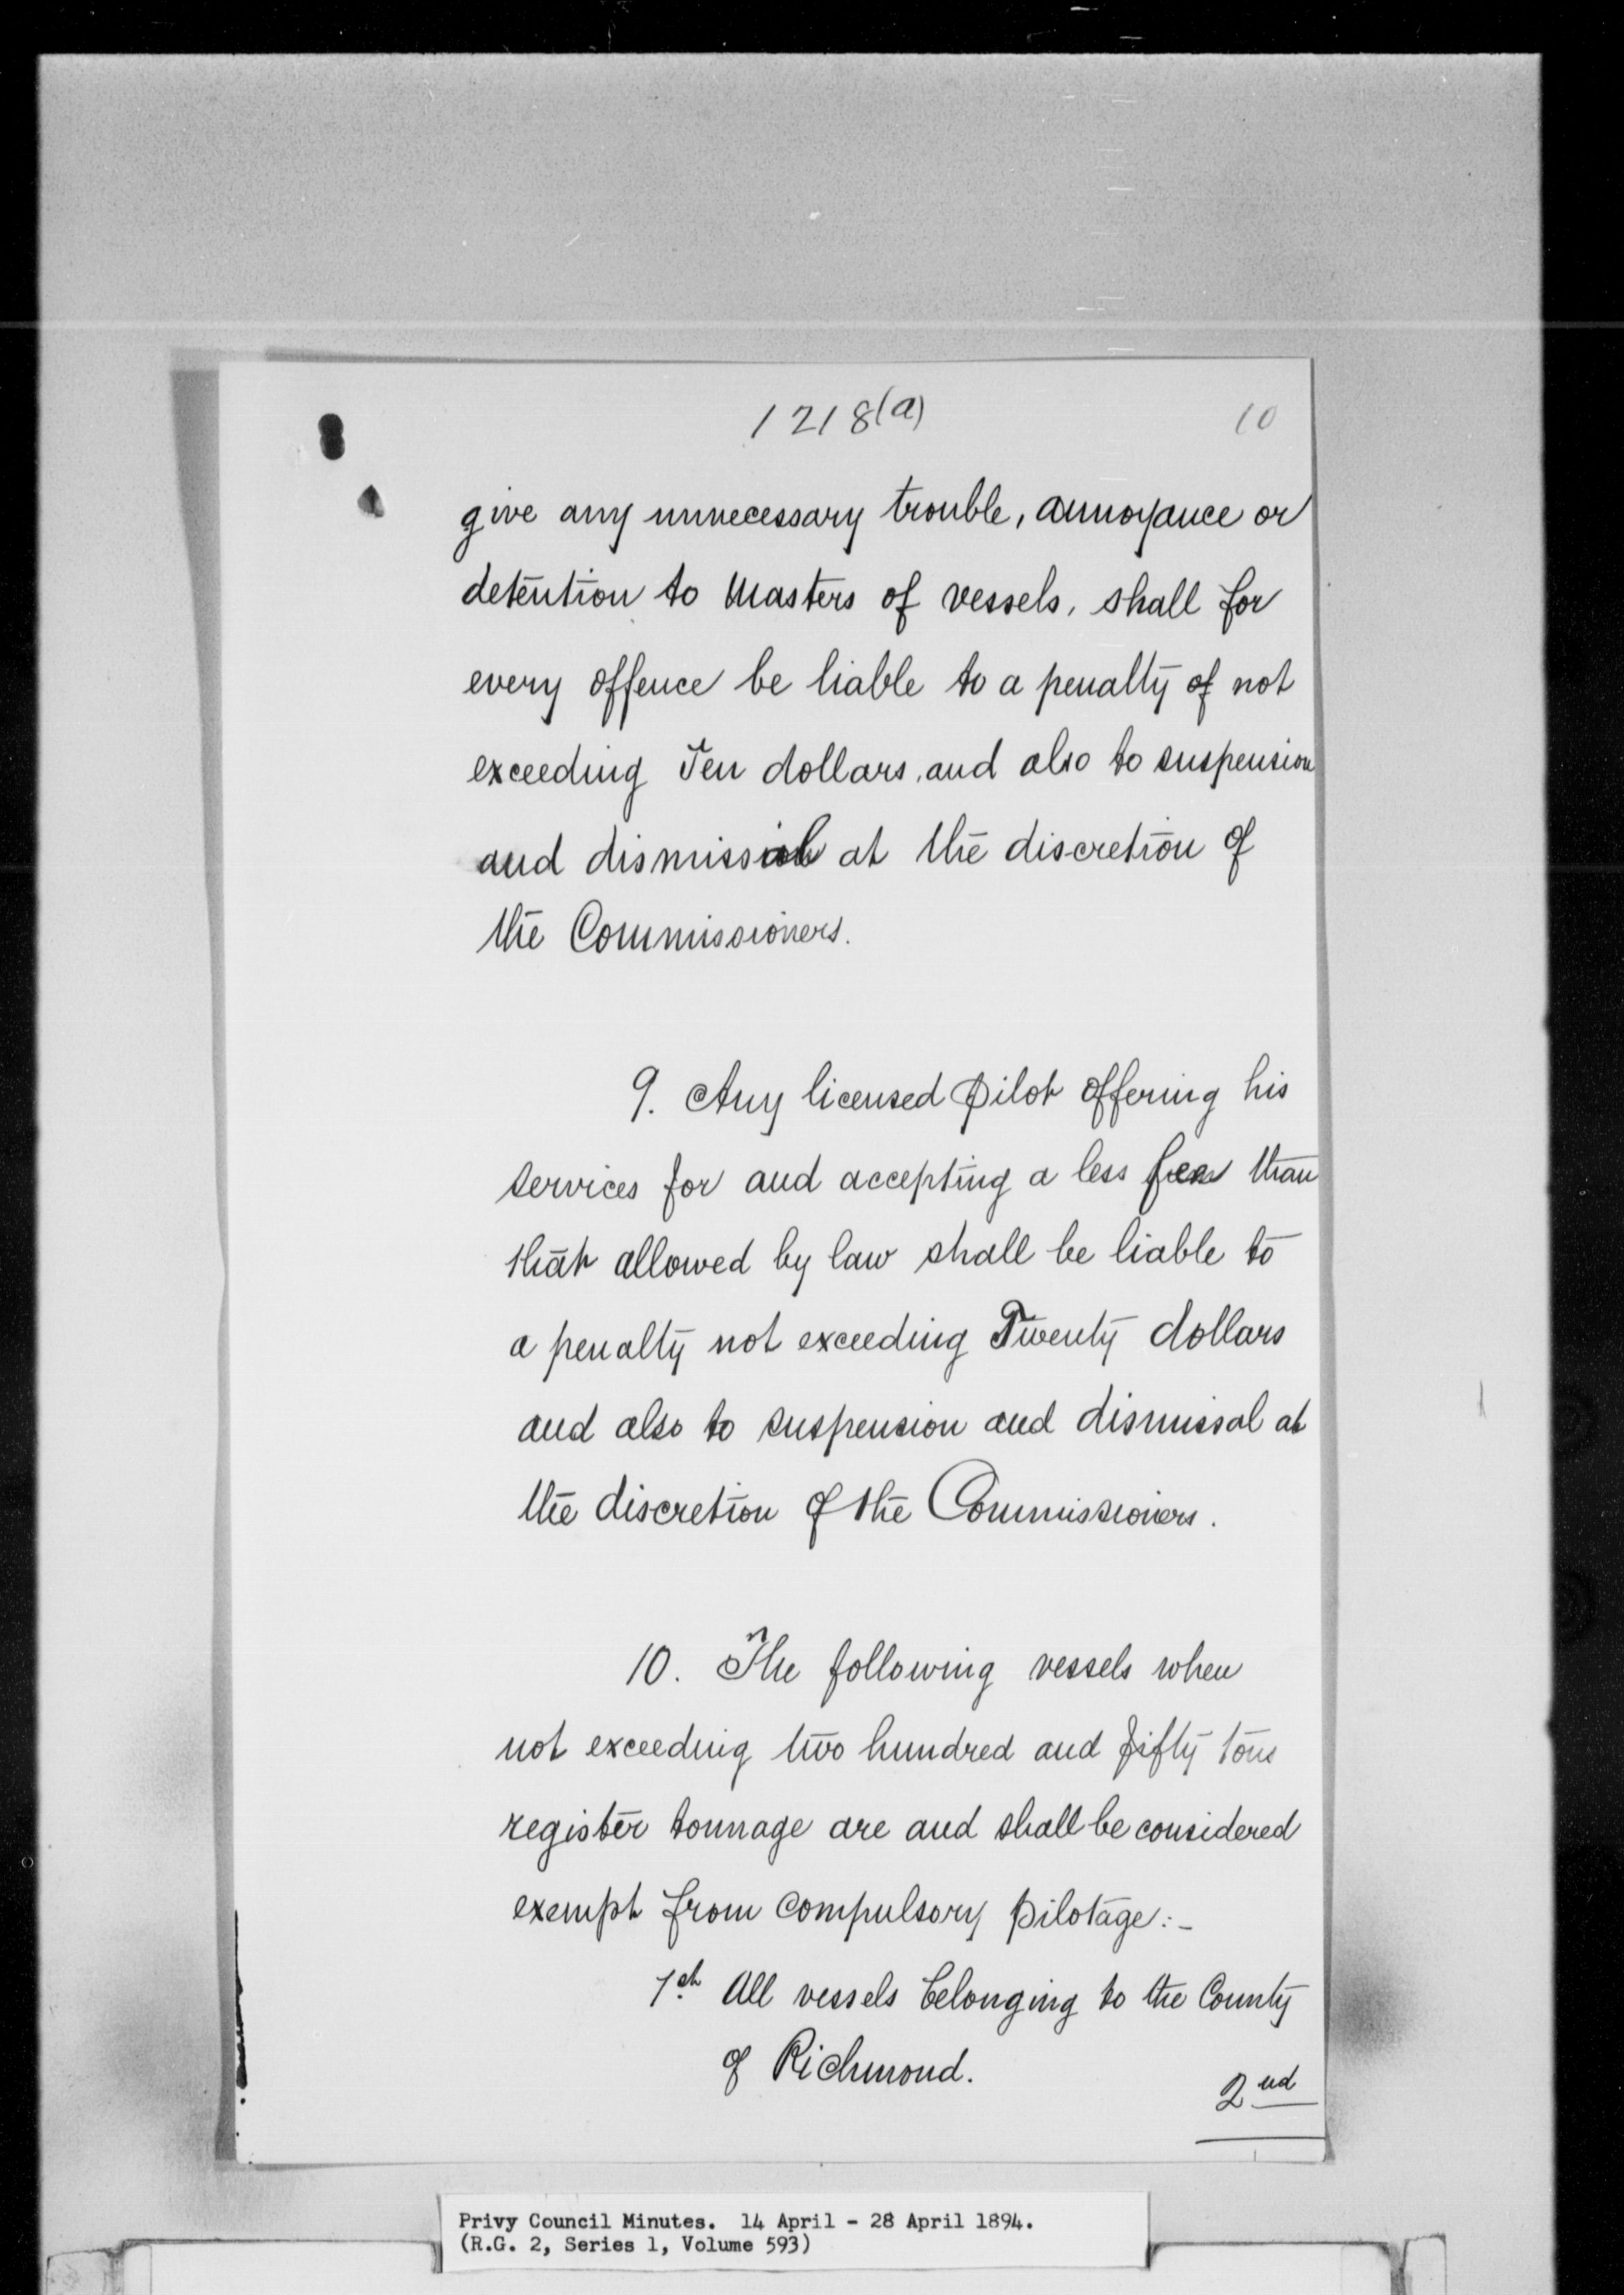 1218(a)
10
give any unnecessary trouble, annoyance or
detention to Masters of vessels, shall for
every offence be liable to a penalty of not
exceeding Ten dollars, and also to suspension
and dismissal at the discretion of
the Commissioners.
9. Any licensed pilot offering his
services for and accepting a less fee than
that allowed by law shall be liable to
a penalty not exceeding Twenty dollars
and also to suspension and dismissal at
the discretion of the Commissioners.
10. The following vessels when
not exceeding two hundred and fifty tons
register tonnage are and shall be considered
exempt from compulsory pilotage:-
1st All vessels belonging to the County
of Richmond.
2nd
Privy Council Minutes. 14 April - 28 April 1894.
(R.G. 2, Series 1, Volume 593)